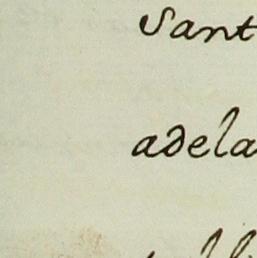 Sant
adela